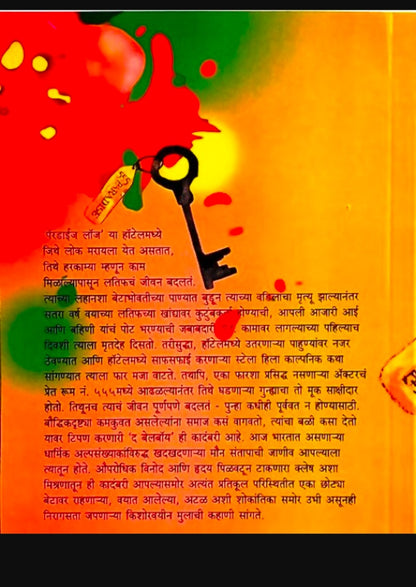 PARADISE
'पॅरडाईज लॉज' या हॉटेलमध्ये
जिथे लोक मरायला येत असतात,
तिथे हरकाम्या म्हणून काम
मिळाल्यापासून लतिफचं जीवन बदलतं.
त्याच्या लहानशा बेटाभोवतीच्या पाण्यात बुडून त्याच्या वडिलांचा मृत्यू झाल्यानंतर
सतरा वर्षं वयाच्या लतिफच्या खांद्यावर कुटुंबकर्ता होण्याची, आपली आजारी आई
आणि बहिणी यांचं पोट भरण्याची जबाबदारी कामावर लागल्याच्या पहिल्याच
दिवशी त्याला मृतदेह दिसतो. तरीसुद्धा, हॉटेलमध्ये उतरणाऱ्या पाहुण्यांवर नजर
ठेवण्यात आणि हॉटेलमध्ये साफसफाई करणाऱ्या स्टेला हिला काल्पनिक कथा
सांगण्यात त्याला फार मजा वाटते. तथापि, एका फारशा प्रसिद्ध नसणाऱ्या अ‍ॅक्टरचं
प्रेत रूम नं. ५५५मध्ये आढळल्यानंतर तिथे घडणाऱ्या गुन्ह्याचा तो मूक साक्षीदार
होतो. तिथूनच त्याचं जीवन पूर्णपणे बदलतं - पुन्हा कधीही पूर्ववत न होण्यासाठी.
बौद्धिकदृष्ट्या कमकुवत असलेल्यांना समाज कसं वागवतो, त्यांचा बळी कसा देतो
यावर टिपण करणारी 'द बेलबॉय' ही कादंबरी आहे. आज भारतात असणाऱ्या
धार्मिक अल्पसंख्याकांविरुद्ध खदखदणाऱ्या मौन संतापाची जाणीव आपल्याला
त्यातून होते. औपरोधिक विनोद आणि हृदय पिळवटून टाकणारा क्लेष अशा
मिश्रणातून ही कादंबरी आपल्यासमोर अत्यंत प्रतिकूल परिस्थितीत एका छोट्या
बेटावर राहणाऱ्या, वयात आलेल्या, अटळ अशी शोकांतिका समोर उभी असूनही
निरागसता जपणाऱ्या किशोरवयीन मुलाची कहाणी सांगते.